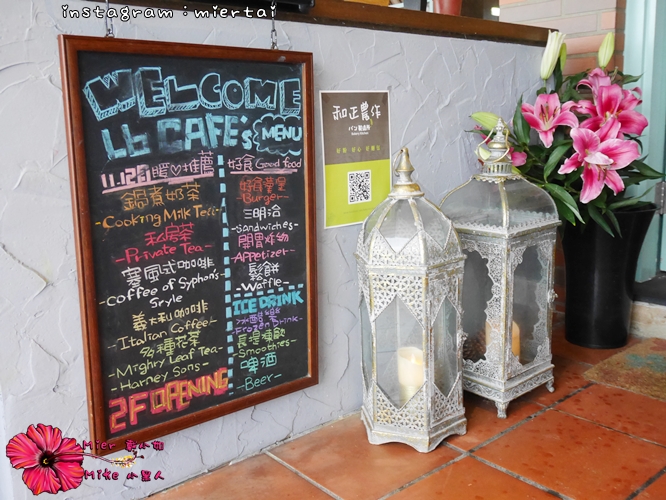 instagram:miertai
WELCOME
Lb CAFE's MENU
11.12月暖♡推薦
鍋煮奶茶
-Cooking Milk Tea-
私房茶
-Private Tea-
塞風式咖啡
-Coffee of Syphon's
Style
義大利咖啡
-Italian Coffee-
多種花茶
-Mighry Leaf Tea-
-Harney Sons-
2F OPENING
好食 Good food
-Burger-
三明治
-Sandwiches-
開胃炸物
-Appetizer-
鬆餅
-Waffle-
ICE DRINK
-Frozen Drink-
-Smoothies-
啤酒
-Beer-
和正農作
パン製造所
Mier
Mike 小星人